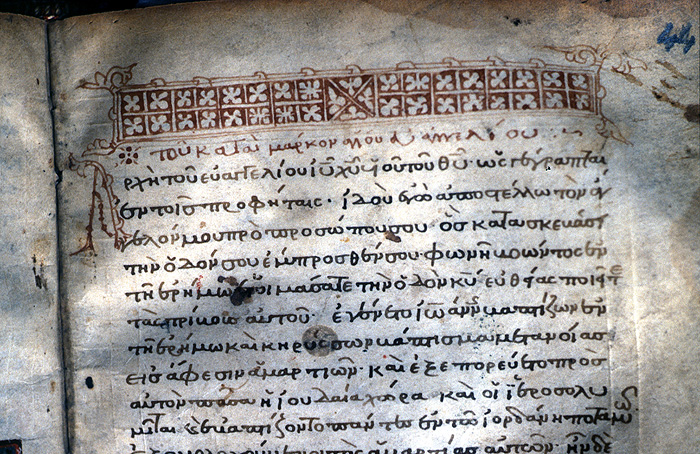 44
τοῦ κατὰ μάρκον ἁγίου εὐαγγελίου
Ἀρχὴ τοῦ εὐαγγελίου ἰῦ χῦ υἱοῦ τοῦ θῦ· ὡς γέγραπται
ἐν τοῖς προφήταις· ἰδοὺ ἐγὼ ἀποστέλλω τὸν ἄγ
γελόν μου πρὸ προσώπου σου· ὃς κατασκευάσει
τὴν ὁδόν σου ἔμπροσθέν σου· φωνὴ βοῶντος ἐν
τῆ ἐρήμω ἑτοιμάσατε τὴν ὁδὸν κῦ εὐθείας ποιεῖτε
τὰς τρίβους αὐτοῦ· ἐγένετο ἰωάννης βαπτίζων ἐν
τῆ ἐρήμω καὶ κηρύσσων βάπτισμα μετανοίας
εἰς ἄφεσιν ἁμαρτιῶν· καὶ ἐξεπορεύετο πρὸς
αὐτὸν πᾶσα ἡ ἰουδαία χώρα καὶ οἱ ἱεροσολυ
μῖται καὶ ἐβαπτίζοντο πάντες ἐν τῶ ἰορδάνη ποταμῶ
ἁμαρτίας αὐτῶν· ἦν δὲ